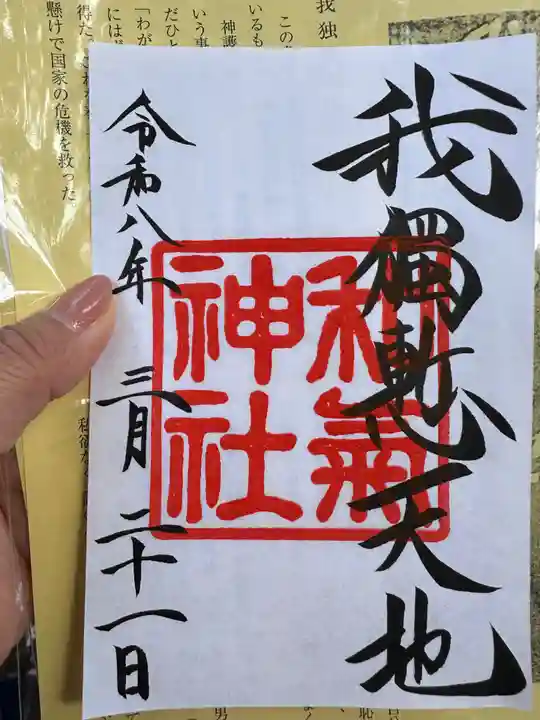 我獨慙天地
和氣
神社
令和八年 三月 二十一日
我独
この
いるも
神護
いう事
だひと
「わが
にはず
得た
懸けで国家の危機を救った